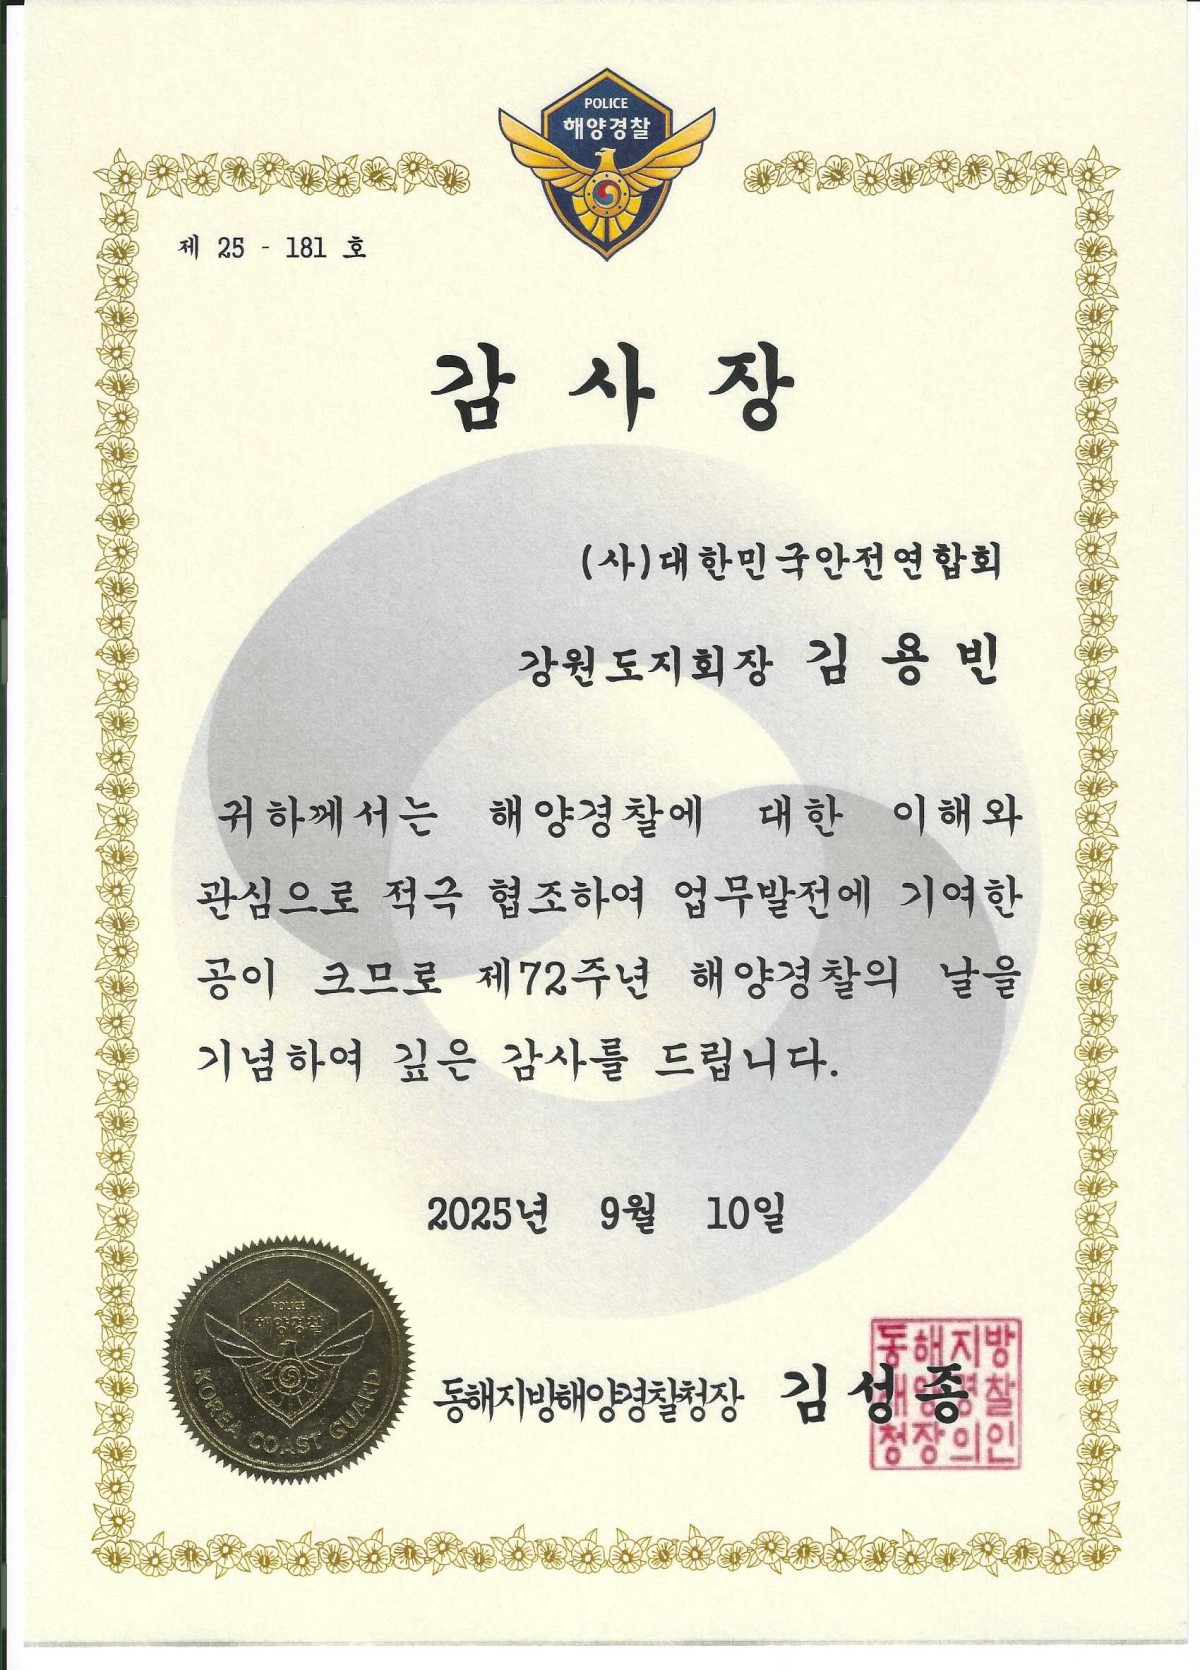 POLICE
해양경찰
제 25 - 181 호
감 사 장
(사)대한민국안전연합회
강원도지회장 김 용 빈
귀하께서는 해양경찰에 대한 이해와
관심으로 적극 협조하여 업무발전에 기여한
공이 크므로 제72주년 해양경찰의 날을
기념하여 깊은 감사를 드립니다.
2025년 9월 10일
POLICE
해양경찰
KOREA COAST GUARD
동해지방해양경찰청장 김 성 종
동해지방
해양경찰
청장의인